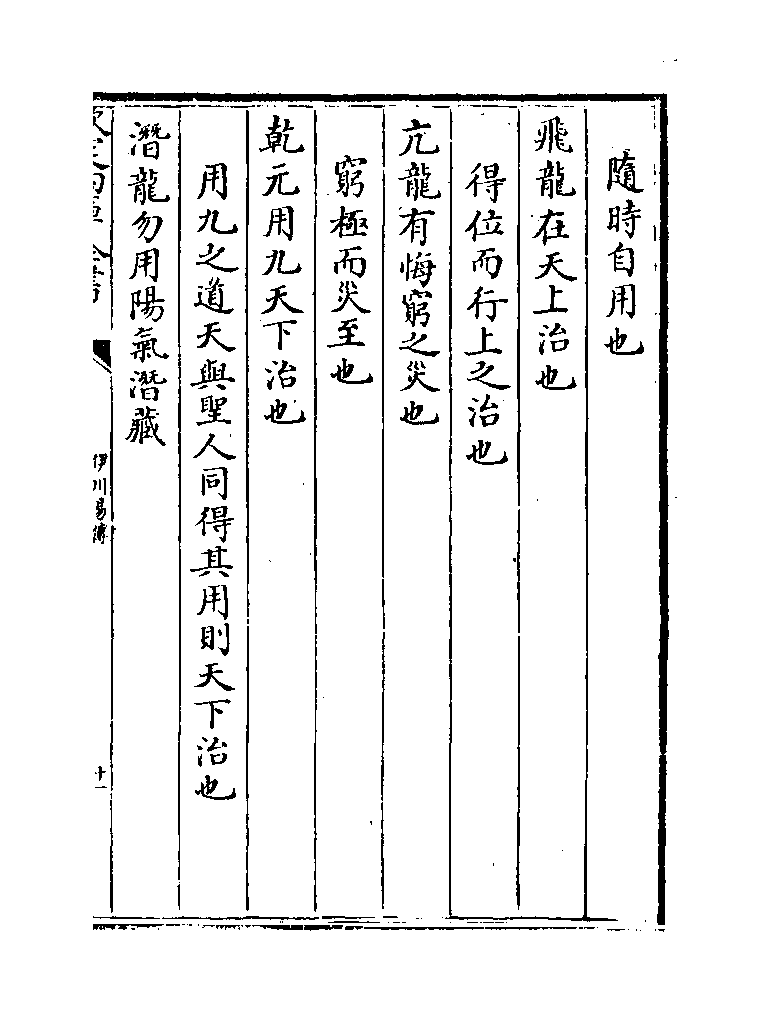 隨時自用也
飛龍在天上治也
得位而行上之治也
亢龍有悔窮之災也
窮極而災至也
乾元用九天下治也
用九之道天與聖人同得其用則天下治也
潛龍勿用陽氣潛藏
伊川易傳
十一